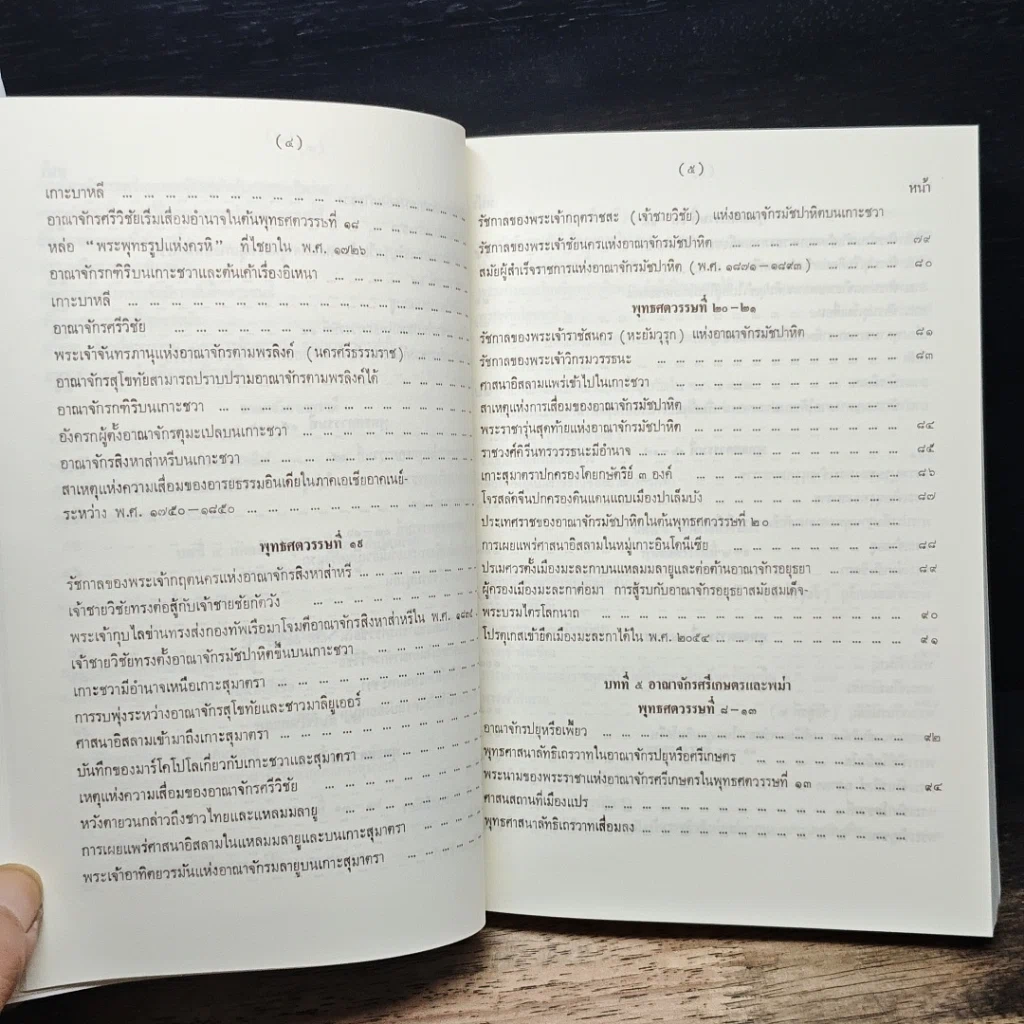 (๔)
เกาะบาหลี ... ... ... ... ... ... ... ... ... ... ... ... ...
อาณาจักรศรีวิชัยเริ่มเสื่อมอำนาจในต้นพุทธศตวรรษที่ ๑๘ ... ... ... ...
หล่อ “พระพุทธรูปแห่งครหิ” ที่ไชยาใน พ.ศ. ๑๗๒๖ ... ... ... ...
อาณาจักรกฑิริบนเกาะชวาและต้นเค้าเรื่องอิเหนา ... ... ... ... ...
เกาะบาหลี ... ... ... ... ... ... ... ... ... ... ... ... ...
อาณาจักรศรีวิชัย ... ... ... ... ... ... ... ... ... ... ...
พระเจ้าจันทรภานุแห่งอาณาจักรตามพรลิงค์ (นครศรีธรรมราช) ... ...
อาณาจักรสุโขทัยสามารถปราบปรามอาณาจักรตามพรลิงค์ได้ ... ... ...
อาณาจักรกฑิริบนเกาะชวา ... ... ... ... ... ... ... ... ... ...
อังครกผู้ตั้งอาณาจักรตุมะเปลบนเกาะชวา ... ... ... ... ... ... ...
อาณาจักรสิงหาส่าหรีบนเกาะชวา ... ... ... ... ... ... ... ...
สาเหตุแห่งความเสื่อมของอารยธรรมอินเดียในภาคเอเซียอาคเนย์-
ระหว่าง พ.ศ. ๑๗๕๐–๑๘๕๐ ... ... ... ... ... ... ... ... ...
พุทธศตวรรษที่ ๑๙
รัชกาลของพระเจ้ากฤตนครแห่งอาณาจักรสิงหาส่าหรี ... ... ... ...
เจ้าชายวิชัยทรงต่อสู้กับเจ้าชายชัยกัตวัง ... ... ... ... ... ...
พระเจ้ากุบไลข่านทรงส่งกองทัพเรือมาโจมตีอาณาจักรสิงหาส่าหรีใน พ.ศ.
เจ้าชายวิชัยทรงตั้งอาณาจักรมัชปาหิตขึ้นบนเกาะชวา ... ... ... ...
เกาะชวามีอำนาจเหนือเกาะสุมาตรา ... ... ... ... ... ... ...
การรบพุ่งระหว่างอาณาจักรสุโขทัยและชาวมาลิยูเออร์ ... ... ... ...
ศาสนาอิสลามเข้ามาถึงเกาะสุมาตรา ... ... ... ... ... ... ...
บันทึกของมาร์โคโปโลเกี่ยวกับเกาะชวาและสุมาตรา ... ... ... ...
เหตุแห่งความเสื่อมของอาณาจักรศรีวิชัย ... ... ... ... ... ...
หวังตายวนกล่าวถึงชาวไทยและแหลมมลายู ... ... ... ... ... ...
การเผยแพร่ศาสนาอิสลามในแหลมมลายูและบนเกาะสุมาตรา ... ... ...
พระเจ้าอาทิตยวรมันแห่งอาณาจักรมลายูบนเกาะสุมาตรา ... ... ...
(๕)
หน้า
รัชกาลของพระเจ้ากฤตราชสะ (เจ้าชายวิชัย) แห่งอาณาจักรมัชปาหิตบนเกาะชวา
รัชกาลของพระเจ้าชัยนครแห่งอาณาจักรมัชปาหิต ... ... ... ... ... ... ... ๗๙
สมัยผู้สำเร็จราชการแห่งอาณาจักรมัชปาหิต (พ.ศ. ๑๘๗๑–๑๘๙๓) ... ... ... ... ๘๐
พุทธศตวรรษที่ ๒๐–๒๑
รัชกาลของพระเจ้าราชัสนคร (หะยัมวุรุก) แห่งอาณาจักรมัชปาหิต ... ... ... ... ๘๑
รัชกาลของพระเจ้าวิกรมวรรธนะ ... ... ... ... ... ... ... ... ... ... ๘๓
ศาสนาอิสลามแพร่เข้าไปในเกาะชวา ... ... ... ... ... ... ... ... ...
สาเหตุแห่งการเสื่อมของอาณาจักรมัชปาหิต ... ... ... ... ... ... ... ...
พระราชารุ่นสุดท้ายแห่งอาณาจักรมัชปาหิต ... ... ... ... ... ... ... ... ๘๔
ราชวงศ์คิรีนทรวรรธนะมีอำนาจ ... ... ... ... ... ... ... ... ... ๘๕
เกาะสุมาตราปกครองโดยกษัตริย์ ๓ องค์ ... ... ... ... ... ... ... ... ๘๖
โจรสลัดจีนปกครองดินแดนแถบเมืองปาเล็มบัง ... ... ... ... ... ... ... ๘๗
ประเทศราชของอาณาจักรมัชปาหิตในต้นพุทธศตวรรษที่ ๒๐ ... ... ... ... ...
การเผยแพร่ศาสนาอิสลามในหมู่เกาะอินโดนีเซีย ... ... ... ... ... ... ... ๘๘
ปรเมศวรตั้งเมืองมะละกาบนแหลมมลายูและต่อต้านอาณาจักรอยุธยา ... ... ... ... ๘๙
ผู้ครองเมืองมะละกาต่อมา การสู้รบกับอาณาจักรอยุธยาสมัยสมเด็จ-
พระบรมไตรโลกนาถ ... ... ... ... ... ... ... ... ... ... ... ๙๐
โปรตุเกสเข้ายึดเมืองมะละกาได้ใน พ.ศ. ๒๐๕๔ ... ... ... ... ... ... ... ๙๑
บทที่ ๕ อาณาจักรศรีเกษตรและพม่า
พุทธศตวรรษที่ ๘–๑๓
อาณาจักรปยุหรือเพียว ... ... ... ... ... ... ... ... ... ... ... ๙๒
พุทธศาสนาลัทธิเถรวาทในอาณาจักรปยุหรือศรีเกษตร ... ... ... ... ... ...
พระนามของพระราชาแห่งอาณาจักรศรีเกษตรในพุทธศตวรรษที่ ๑๓ ... ... ... ๙๔
ศาสนสถานที่เมืองแปร ... ... ... ... ... ... ... ... ... ... ...
พุทธศาสนาลัทธิเถรวาทเสื่อมลง ... ... ... ... ... ... ... ... ... ...